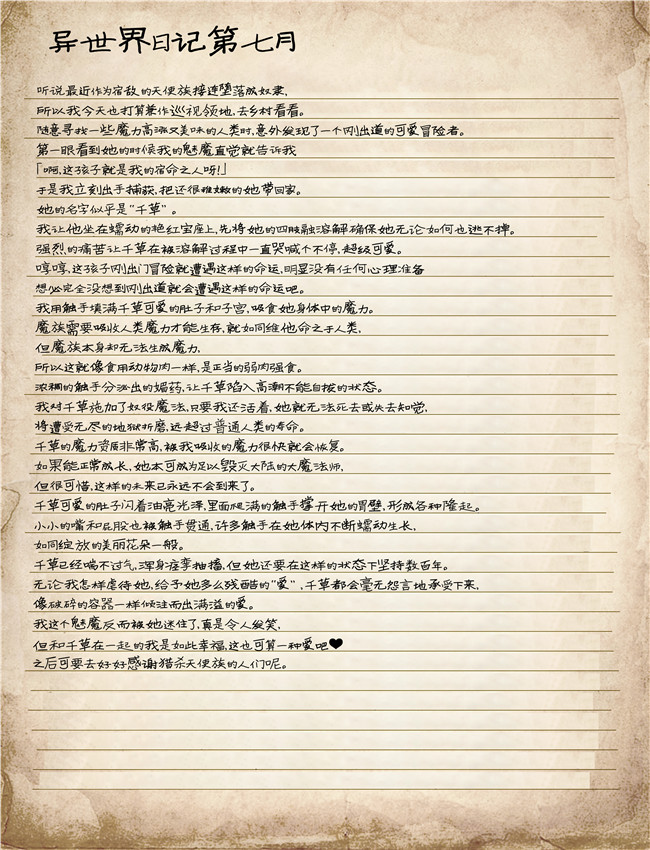 异世界日记第七月
听说最近作为宿敌的天使族接连堕落成奴隶,
所以我今天也打算兼作巡视领地,去乡村看看。
随意寻找一些魔力高涨又美味的人类时,意外发现了一个刚出道的可爱冒险者。
第一眼看到她的时候我的魅魔直觉就告诉我
「啊,这孩子就是我的宿命之人呀!」
于是我立刻出手捕获,把还很难缠的她带回家。
她的名字似乎是"千草"。
我让他坐在蠕动的艳红宝座上,先将她的四肢融溶解确保她无论如何也逃不掉。
强烈的痛苦让千草在被溶解过程中一直哭喊个不停,超级可爱。
哼哼,这孩子刚出门冒险就遭遇这样的命运,明显没有任何心理准备
想必完全没想到刚出道就会遭遇这样的命运吧。
我用触手填满千草可爱的肚子和子宫,吸食她身体中的魔力。
魔族需要吸收人类魔力才能生存,就如同维他命之于人类,
但魔族本身却无法生成魔力,
所以这就像食用动物肉一样,是正当的弱肉强食。
浓稠的触手分泌出的媚药,让千草陷入高潮不能自拔的状态。
我对千草施加了奴役魔法,只要我还活着,她就无法死去或失去知觉,
将遭受无尽的地狱折磨,远超过普通人类的寿命。
千草的魔力资质非常高,被我吸收的魔力很快就会恢复。
如果能正常成长,她本可成为足以毁灭大陆的大魔法师,
但很可惜,这样的未来已永远不会到来了。
千草可爱的肚子闪着油亮光泽,里面爬满的触手撑开她的胃壁,形成各种隆起。
小小的嘴和屁股也被触手贯通,许多触手在她体内不断蠕动生长,
如同绽放的美丽花朵一般。
千草已经喘不过气,浑身痉挛抽搐,但她还要在这样的状态下坚持数百年。
无论我怎样虐待她,给予她多么残酷的"爱",千草都会毫无怨言地承受下来,
像破碎的容器一样倾注而出满溢的爱。
我这个魅魔反而被她迷住了,真是令人发笑,
但和千草在一起的我是如此幸福,这也可算一种爱吧♥
之后可要去好好感谢猎杀天使族的人们呢。